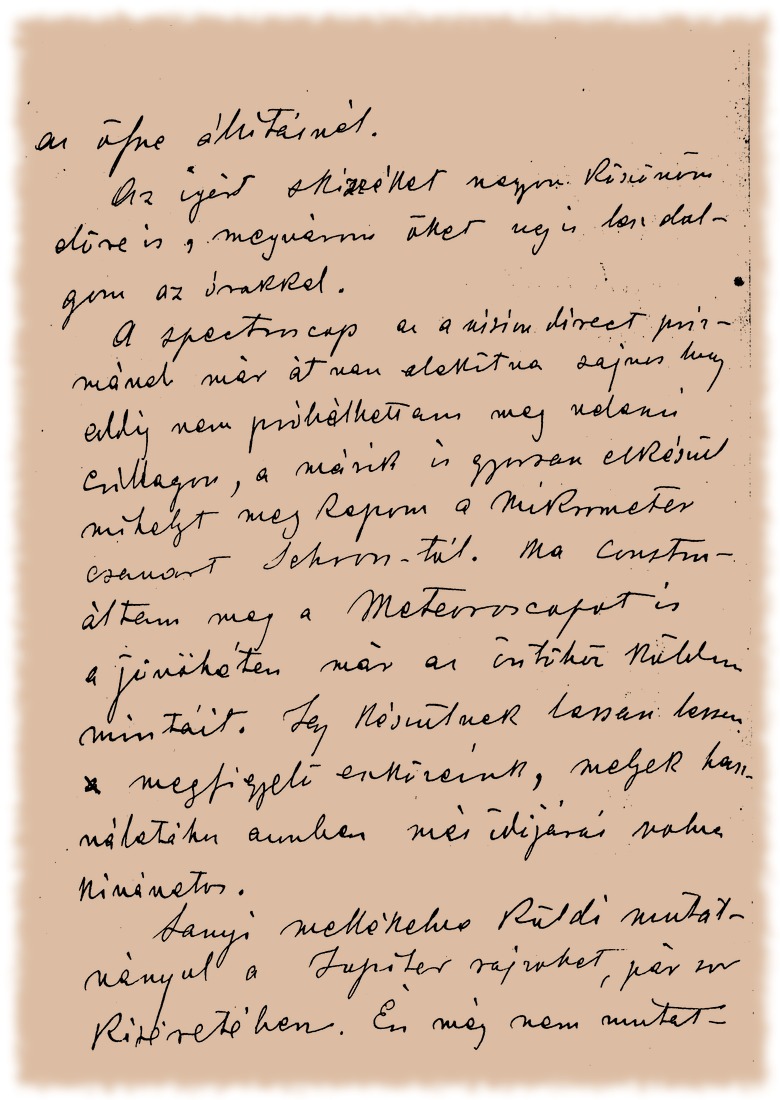 az őfne állitásnál.
Az igért skizzéket nagyon köszönöm
előre is, megvárom őket ugis lesz dol-
gom az órákkal.
A spectroscop az a vision direct pris-
mánál már át van alakitva sajnos hogy
eddig nem próbálhattam meg valami
csillagon, a másik is gyorsan elkészül
mihelyt meg kapom a Mikrometer
csavart tól. Ma constru-
áltam meg a Meteoroscopot is
a jövőhéten már az öntőhöz küldem
mintáit. Igy készülnek lassan lassan
megfigyelő eszközeink, melyek hasz-
nálatához azonban más időjárás volna
kivánatos.
Sanyi mellékelve küldi mutat-
ványul a Jupiter rajzokat, pár sor
kiséretében. Én még nem mutat-